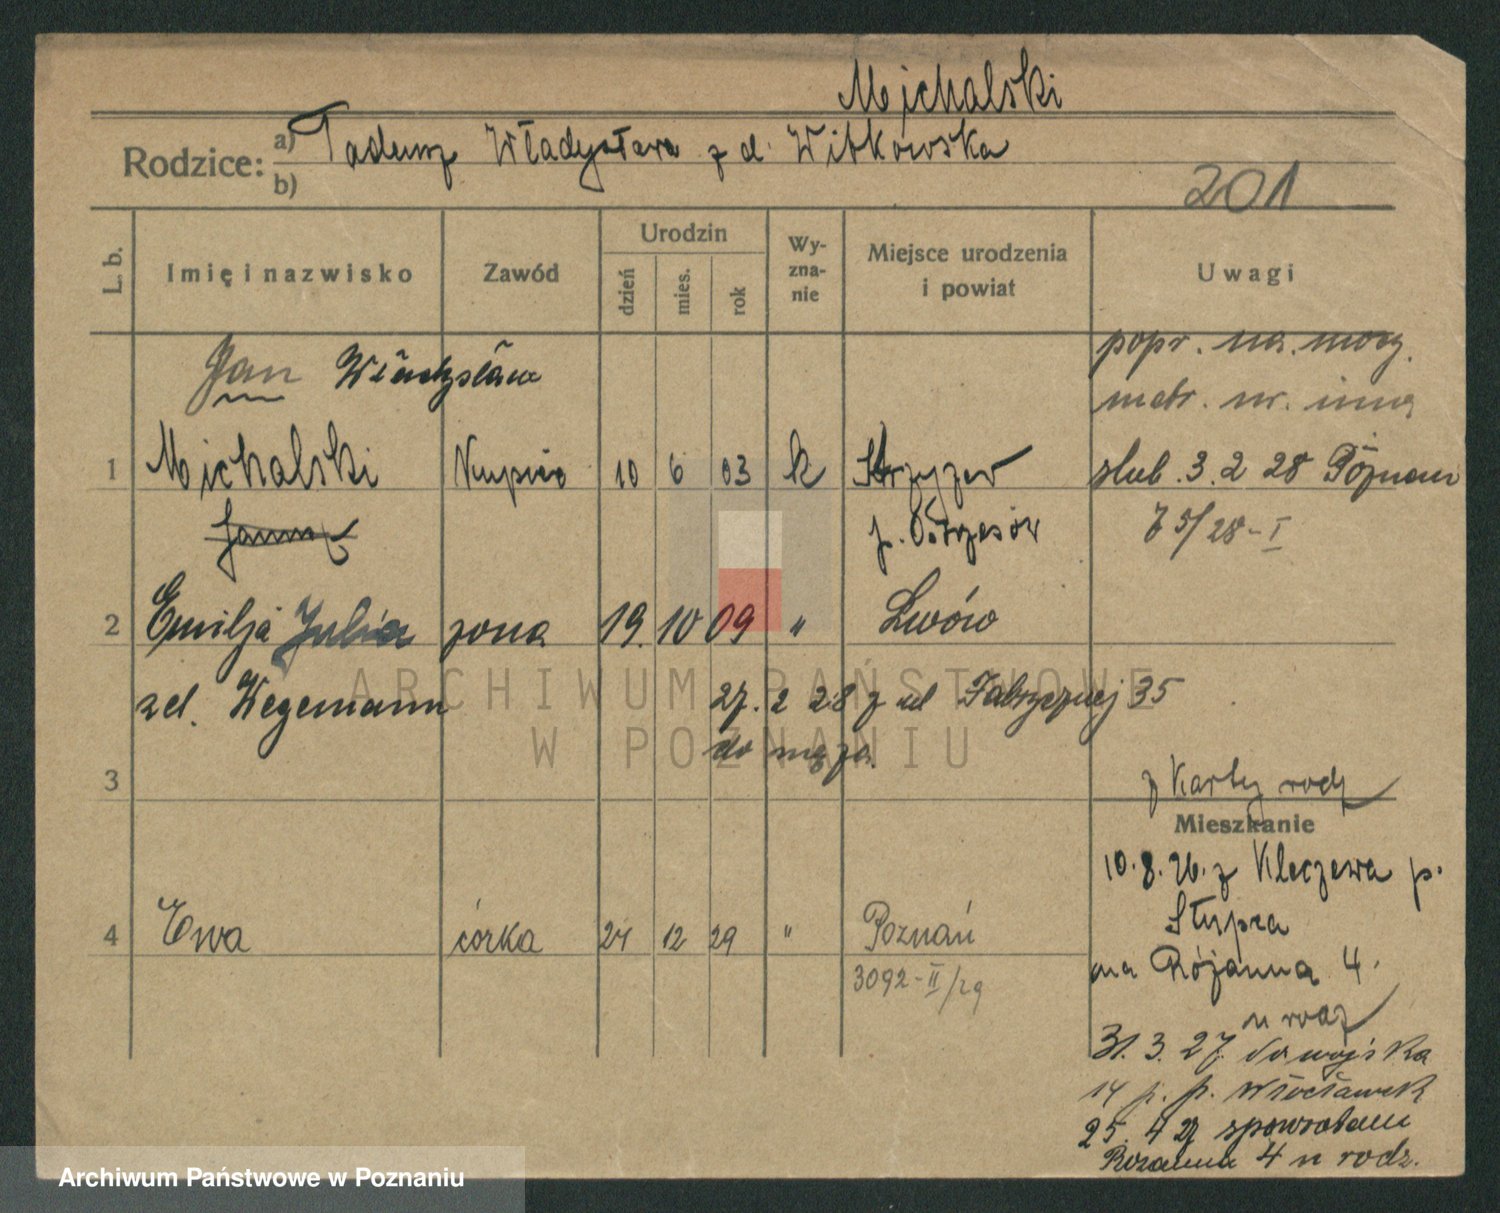 Michalski
Rodzice: a) Tadeusz Władysława z d. Witkowska
b)
201
L. b.
Imię i nazwisko
Zawód
Urodzin
dzień
mies.
rok
Wy-
zna-
nie
Miejsce urodzenia
i powiat
Uwagi
Jan Władysław
popr. na.
metr. nr.
1 Michalski Kupiec 10 6 03 k Strzyżew
p. Ostrzeszów
ślub. 3. 2 28 Poznań
75/28-I
2 Emilja Julia żona 19. 10 09 " Lwów
zd. Wegemann
27. 2 28 z ul Fabrycznej 35
do męża.
3
z Karty rodz
Mieszkanie
10. 8. 26. z Kleczewa p.
Słupca
na Różanna 4.
u rodz
4 Ewa córka 24 12 29 " Poznań
3092-II/29
31. 3. 27 do wojska
14 p. p. Włocławek
25. 4 27 spowrotem
Różanna 4 u rodz.
ARCHIWUM PAŃSTWOWE
W POZNANIU
Archiwum Państwowe w Poznaniu